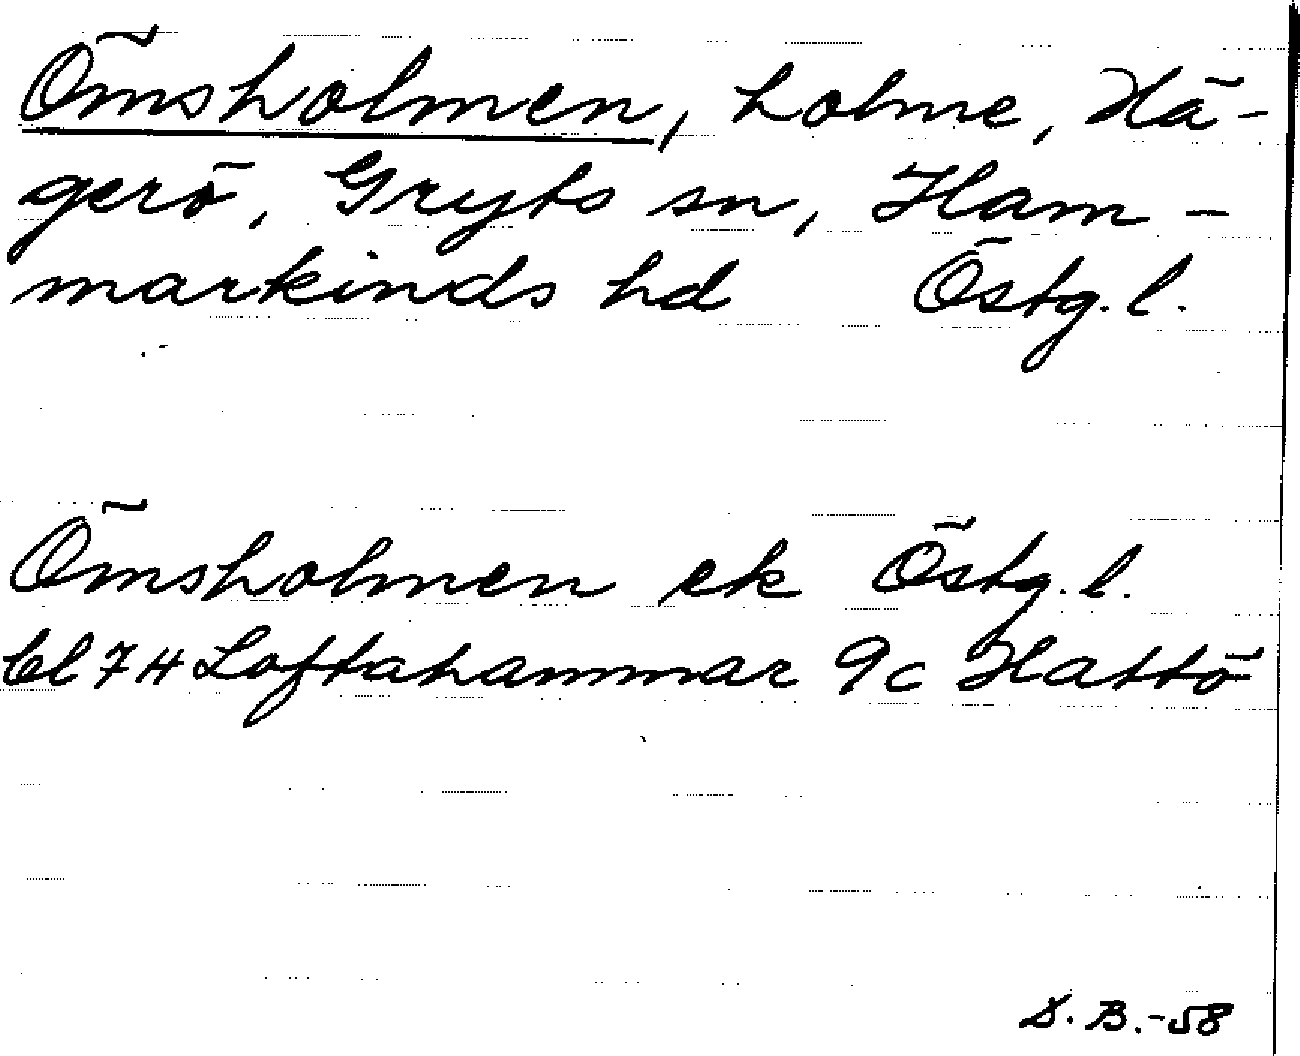 Ömsholmen, holme, Hä-
gerö, Gryts sn, Ham-
markinds hd Östg. l.
Ömsholmen ek Östg. l.
bl 7H Loftahammar 9c Hattö
S. B. -58